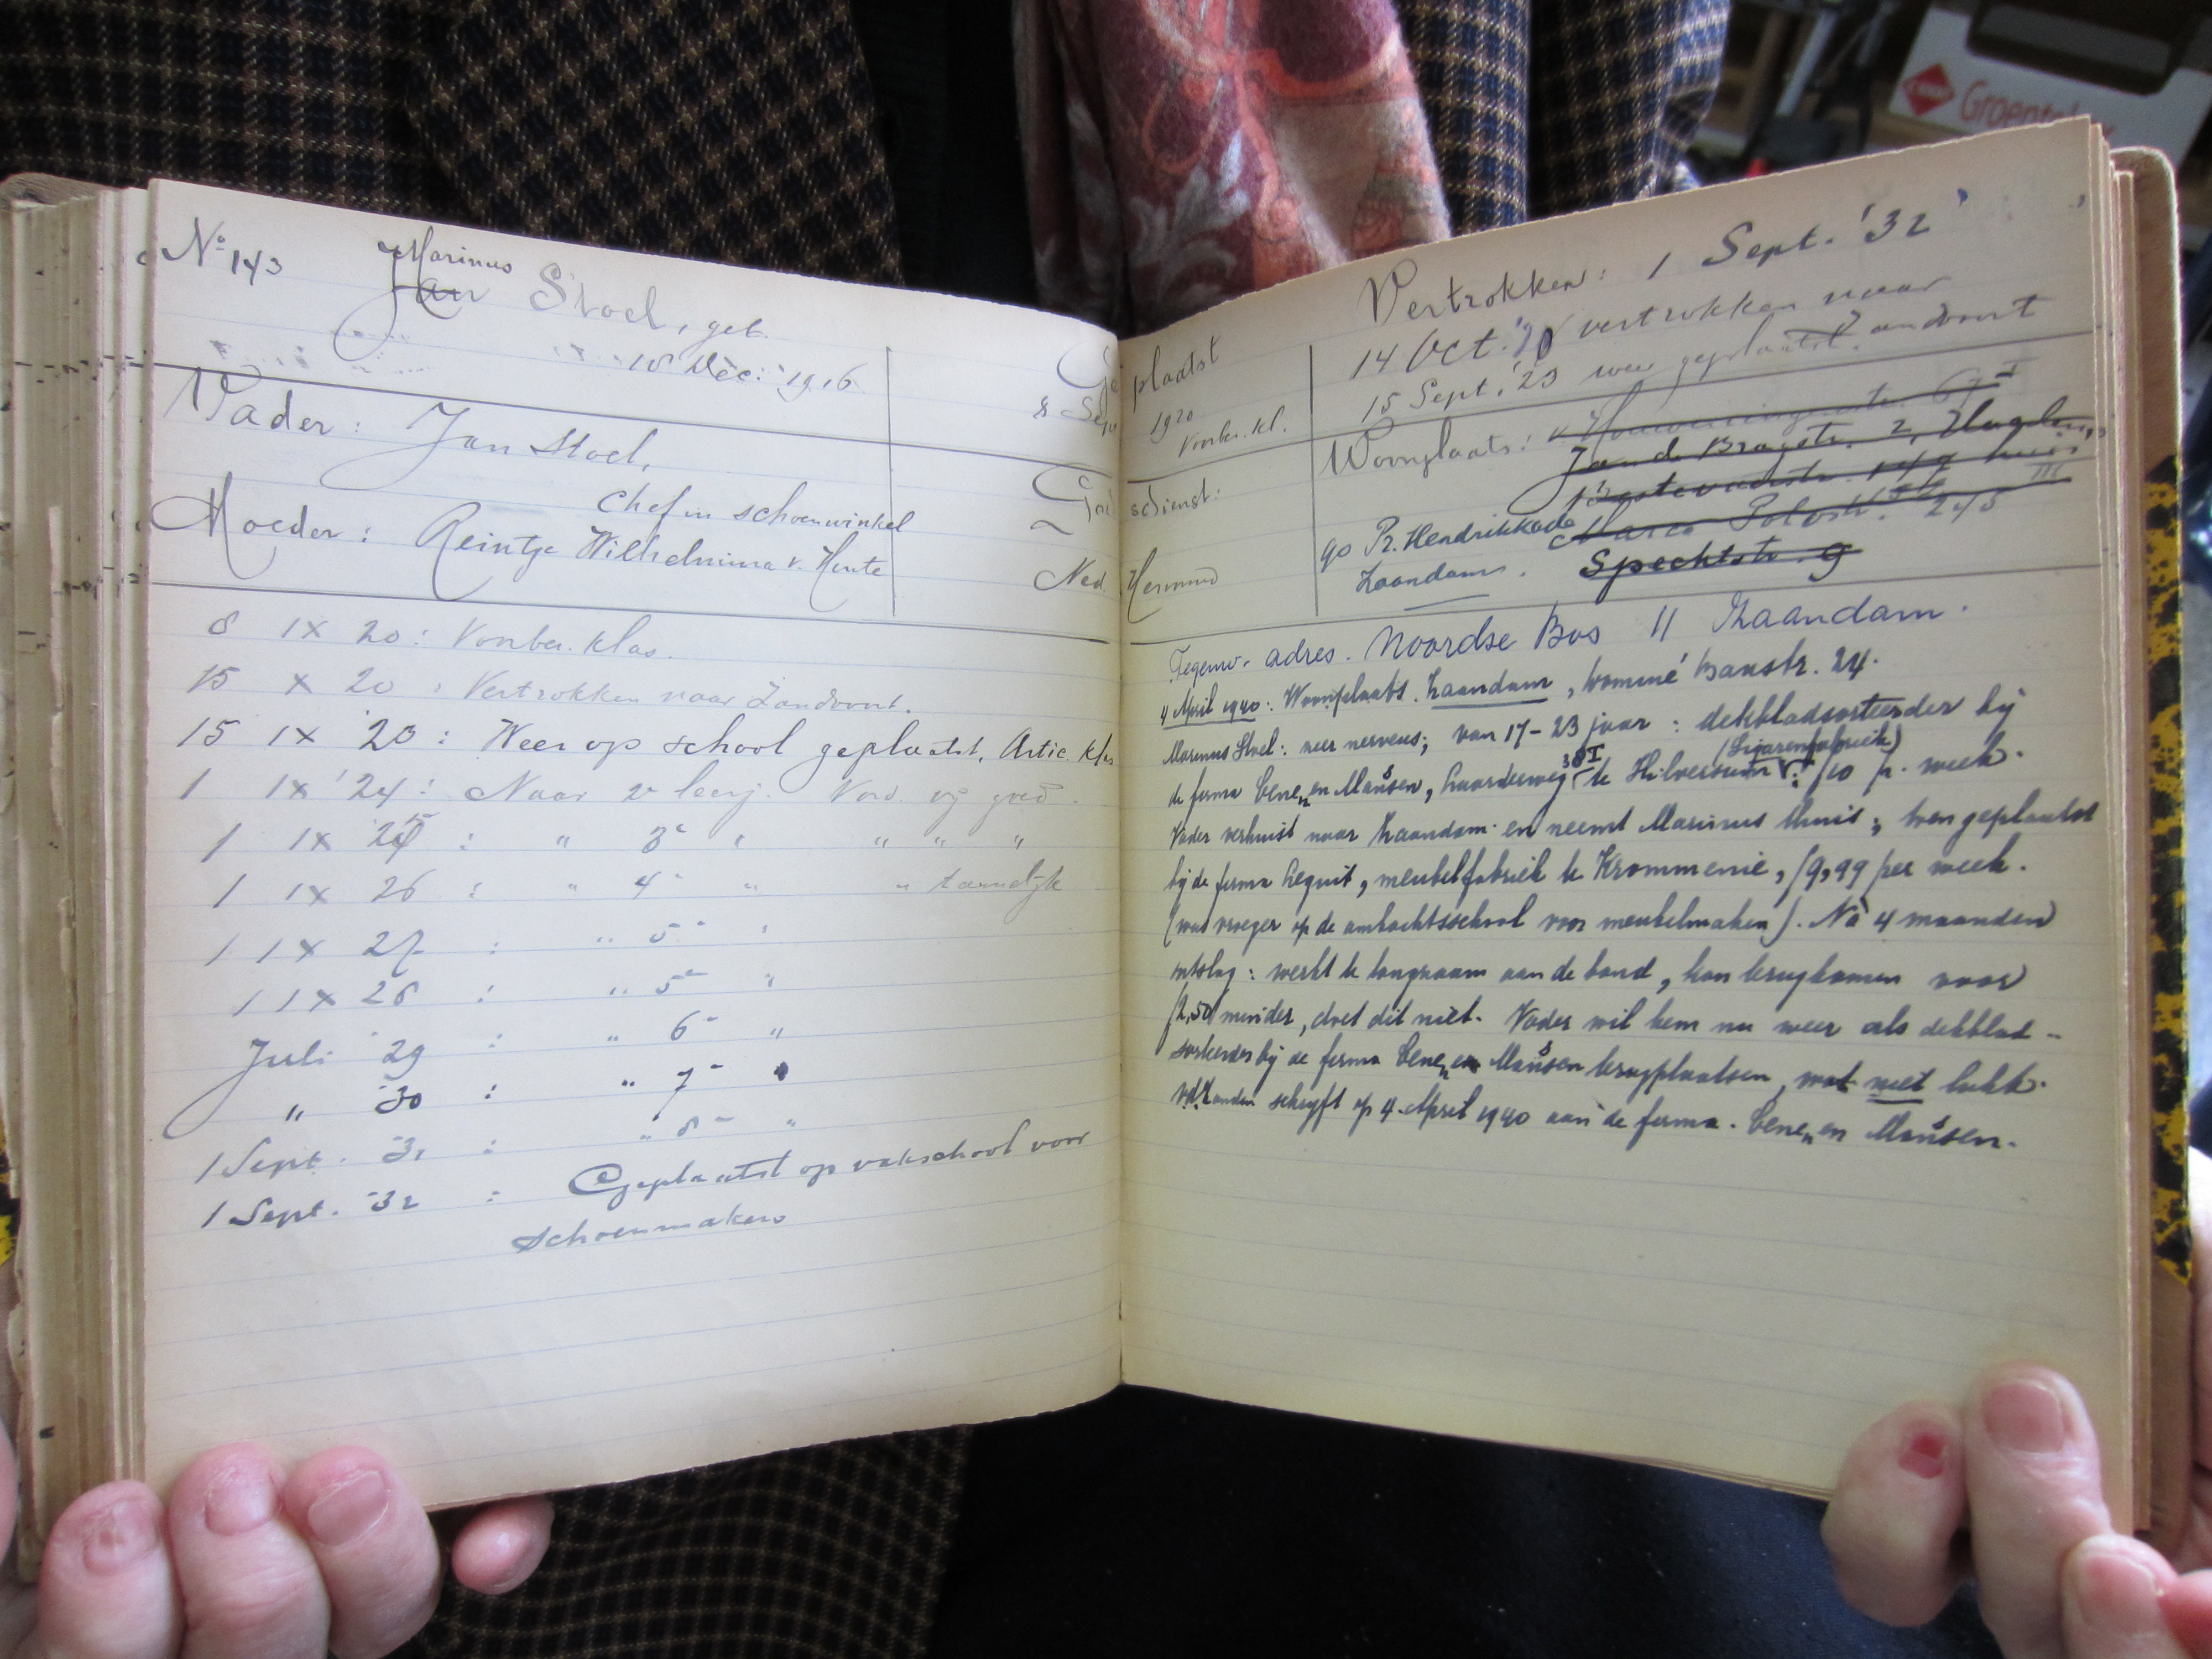 No 143 Marinus
Jan Stoel, geb.
18 Dec. 1916
Vader: Jan Stoel,
chef in schoenwinkel
Moeder: Reintje
Wilhelmina v. Hente
Ge
8 Sep
God
Ned.
8 IX 20: Voorber. klas.
15 X 20: Vertrokken naar Zandvoort.
15 IX '23: Weer op school geplaatst, Artic. klas
1 IX '24: Naar 2e leerj. Vord. vrij goed.
1 IX 25 : " 3e " " " "
1 IX 26 : " 4e " " tamelijk
1 IX 27 : " 5e "
1 IX 28 : " 5e "
Juli '29 : " 6e "
" '30 : " 7e "
1 Sept. '31 : " 8e "
1 Sept. '32 : Geplaatst op vakschool voor
schoenmakers
Vertrokken: 1 Sept. '32
plaatst
1920
Voorber. kl.
14 Oct. '20 vertrokken naar
Zandvoort
15 Sept. '23 weer geplaatst.
sdienst:
Hervormd
Woonplaats: 67 I
Jan de Bray str. 2,
147 huis
Marco Polostr. 245 III
90 Pr. Hendrikkade
Spechtstr. 9
Zaandam.
Tegenw. adres. Noordse Bos 11 Zaandam.
4 April 1940: Woonplaats. Zaandam, Banstr. 24.
Marinus Stoel: zeer nerveus; van 17-23 jaar: dekbladsorteerder bij
(Sigarenfabriek)
de firma en Mansen, 38 I te Hilversum: f10 p. week.
Vader verhuist naar Zaandam en neemt Marinus thuis; toen geplaatst
bij de firma , meubelfabriek te Krommenie, f9,99 per week.
(was vroeger op de ambachtsschool voor meubelmaken). Na 4 maanden
ontslag: werkt te langzaam aan de band, kan terugkomen voor
f2,50 minder, doet dit niet. Vader wil hem nu weer als dekblad-
sorteerder bij de firma en Mansen terugplaatsen, wat niet lukt.
schrijft op 4 April 1940 aan de firma en Mansen.
Groente